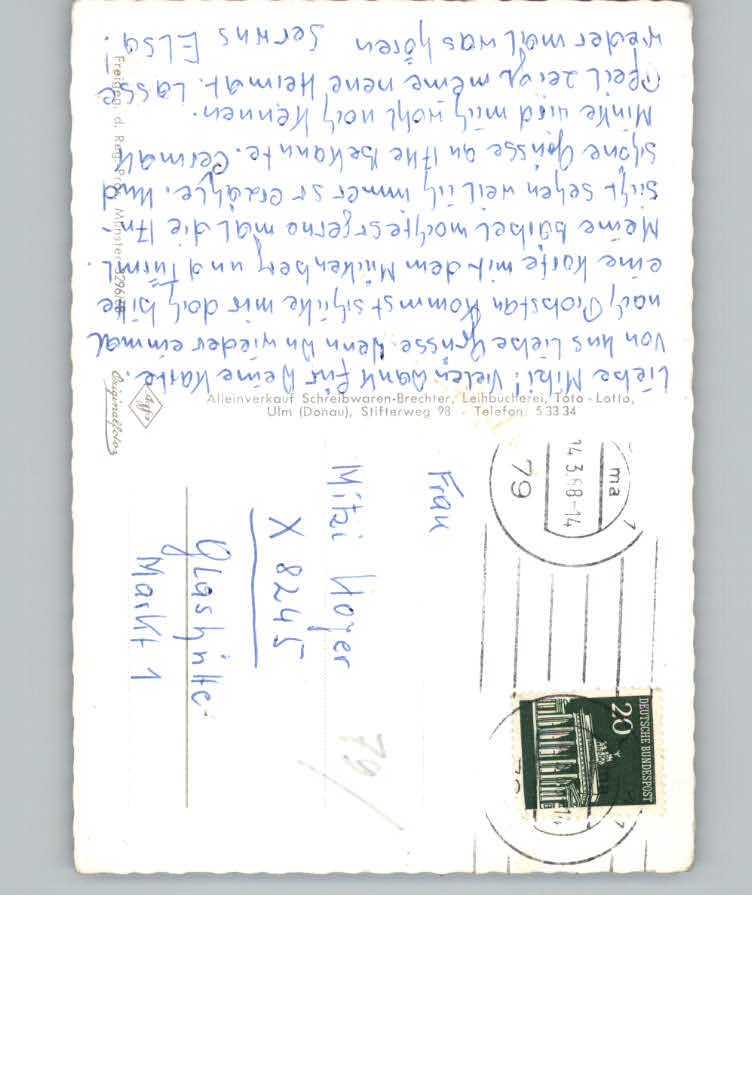 Liebe Mitzi! Vielen Dank für Deine Karte.
Von uns Liebe Grüsse. Wenn Du wieder einmal
nach kommst schicke mir doch bitte
eine Karte mit dem Mückenberg und Türml.
Meine Bärbel möchte so gerne mal die An-
sicht sehen weil ich immer so erzähle. Und
schöne Grüsse an Alle Bekannte.
Minke wird mich wohl noch Kennen.
Pfeil zeigt meine neue Heimat. Lasse
wieder mal was hören Servus Elsa!
Alleinverkauf Schreibwaren-Brechter, Leihbücherei, Toto-Lotto,
Ulm (Donau), Stifterweg 98 - Telefon 5 33 34
Agfa
Originalfoto
Freigeg. d. Reg. Präs. Münster
Frau
Mitzi Hoyer
X 8245
Glashütte
Markt 1
79
14.3.68-14
79
ma
DEUTSCHE BUNDESPOST
20